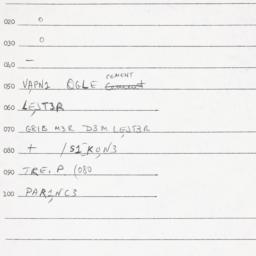 020 0
030 0
040 —
050 VAPN1 OGLE CEMENT
060 LE,ST3R
070 GRIB M3R D3M LE,ST3R
080 + /S1,KON3
090 TRE, P. (080
100 PAR1NC3